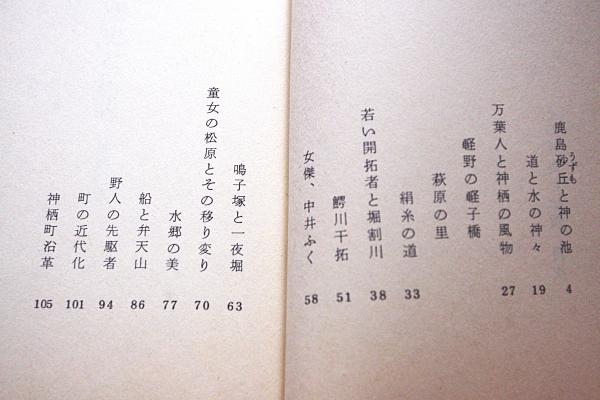 鹿島砂丘と神の池 4
うずも
道と水の神々 19
万葉人と神栖の風物 27
軽野の軽子橋
萩原の里
絹糸の道 33
若い開拓者と堀割川 38
鰐川干拓 51
女傑、中井ふく 58
鳴子塚と一夜堀 63
童女の松原とその移り変り 70
水郷の美 77
船と弁天山 86
野人の先駆者 94
町の近代化 101
神栖町沿革 105